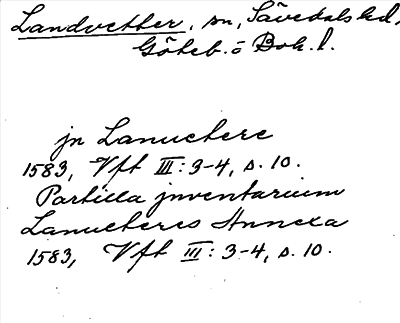 Landvetter, sn, Sävedals hd,
Göteb. o Boh. l.
jn Lanuetere
1583, Vft III: 3-4, s. 10.
Partilla jnventarium
Lanueteres Annexa
1583, Vft III: 3-4, s. 10.